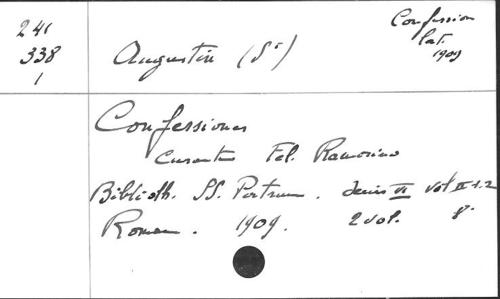 241
338
1
Augustin (St)
Confession
lat.
1909
Confessiones
Curante Fel. Ramorino
Biblioth. SS. Patrum. Series VI vol II 1.2
Romae. 1909. 2 vol. 8°